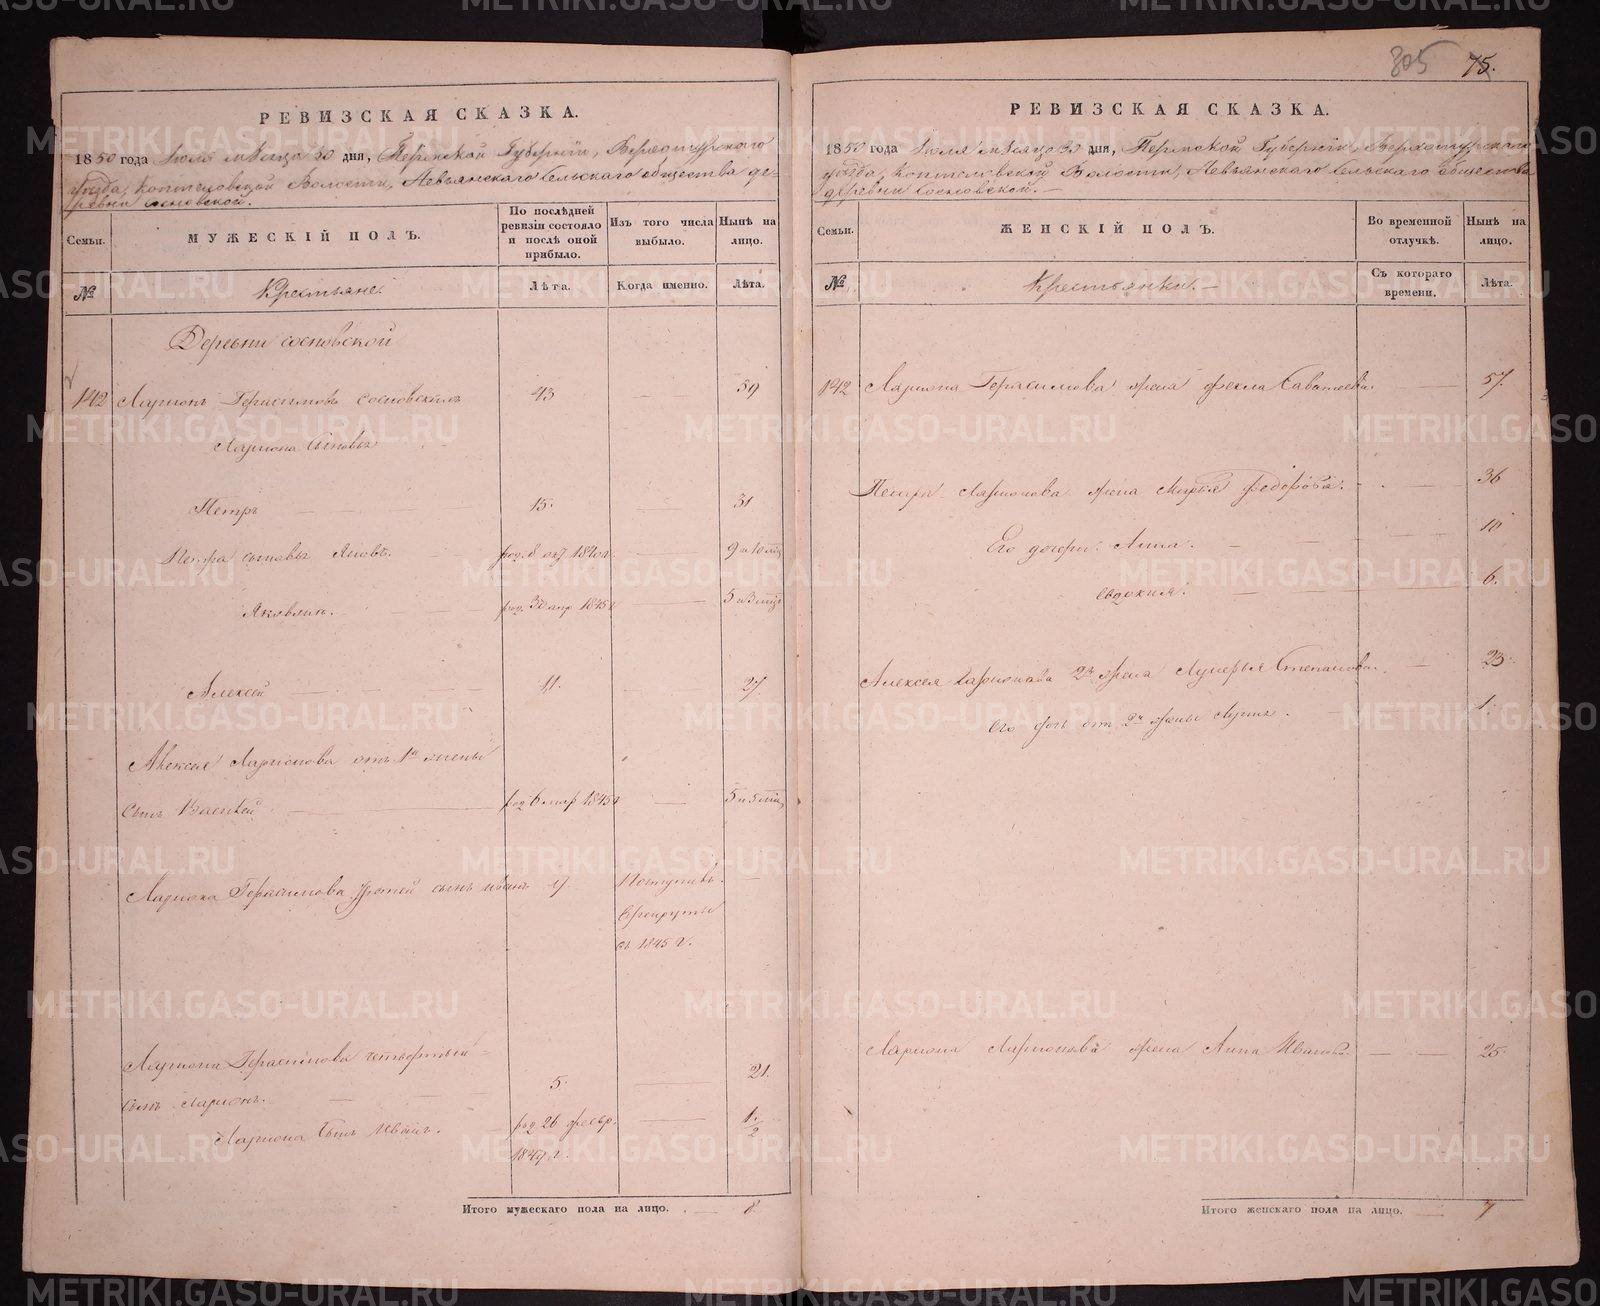 805 75.
РЕВИЗСКАЯ СКАЗКА.
1850 года Июля мѣсяца 30 дня, Пермской Губерніи, Верхотурскаго
уѣзда, Коптеловской Волости, Невьянскаго Сельскаго общества де-
ревни Сосновской.
Семьи.
МУЖЕСКІЙ ПОЛЪ.
По послѣдней ревизіи состояло и послѣ оной прибыло.
Изъ того числа выбыло.
Нынѣ на лицо.
№
Крестьяне.
Лѣта.
Когда именно.
Лѣта.
Деревни Сосновской
142 Ларионъ Герасимовъ Сосновскихъ 43 59
Лариона Сыновья
Петръ 15. 31
Петра сыновья род. 8 1840 г. 9 и 10 мѣс
род. 30 апр 1845 г 5 и 3 мѣс
Алексей 11. 27
Алексея Ларионова отъ 1й жены
сынъ род 6 мар 1845 г 5 и 5 мѣс
Лариона Герасимова третей сынъ Иванъ 19. Поступилъ
в рекруты
съ 1845 г.
Лариона Герасимова четвертый
сынъ Ларионъ. 5. 21.
Лариона Сынъ Иванъ. род 26 февр. 1 1/2
1849 г.
Итого мужескаго пола на лицо. 8
РЕВИЗСКАЯ СКАЗКА.
1850 года Июля мѣсяца 30 дня, Пермской Губерніи, Верхотурскаго
уѣзда, Коптеловской Волости, Невьянскаго Сельскаго общества
деревни Сосновской.
Семьи.
ЖЕНСКІЙ ПОЛЪ.
Во временной отлучкѣ.
Нынѣ на лицо.
№
Крестьянки.
Съ котораго времени.
Лѣта.
142 Лариона Герасимова жена Фекла Саватеева 57.
Петра Ларионова жена Марья Федорова. 36
Его дочери: Анна. 10
Евдокия. 6.
Алексея Ларионова 2я жена Лукерья Степанова. 23
Его доч от 2й жены 1.
Лариона Ларионова жена Анна Иванова 25.
Итого женскаго пола на лицо. 7
METRIKI.GASO-URAL.RU